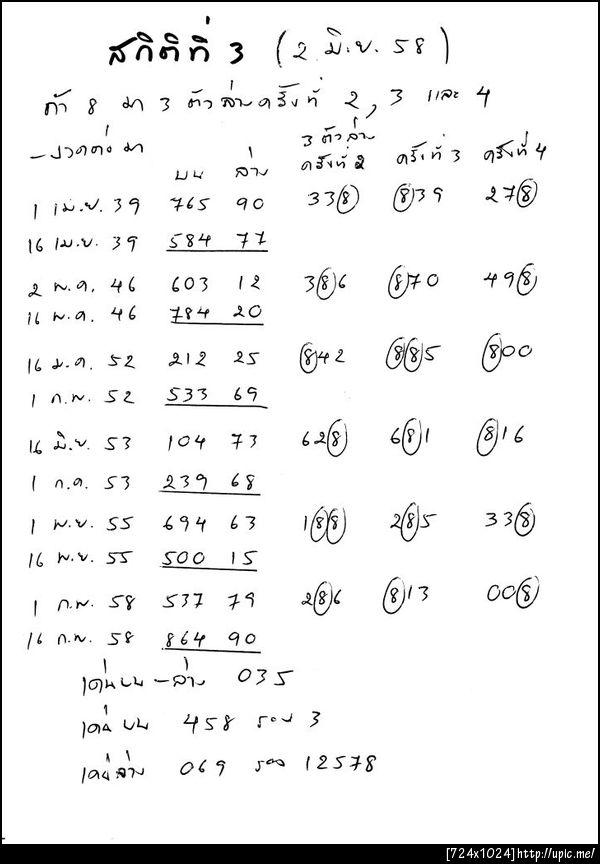 สถิติที่ 3 (2 มิ.ย. 58)
ถ้า 8 มา 3 ตัวล่างครั้งที่ 2, 3 และ 4
- งวดต่อมา 3 ตัวล่าง
บน ล่าง ครั้งที่ 2 ครั้งที่ 3 ครั้งที่ 4
1 เม.ย. 39 765 90 338 839 278
16 เม.ย. 39 584 77
2 พ.ค. 46 603 12 386 870 498
16 พ.ค. 46 784 20
16 ม.ค. 52 212 25 842 885 800
1 ก.พ. 52 533 69
16 มิ.ย. 53 104 73 628 681 816
1 ก.ค. 53 239 68
1 พ.ย. 55 694 63 188 285 338
16 พ.ย. 55 500 15
1 ก.พ. 58 537 79 286 813 008
16 ก.พ. 58 864 90
เด่นบน - ล่าง 035
เด่นบน 458 รอง 3
เด่นล่าง 069 รอง 12578
[724x1024]http://upic.me/